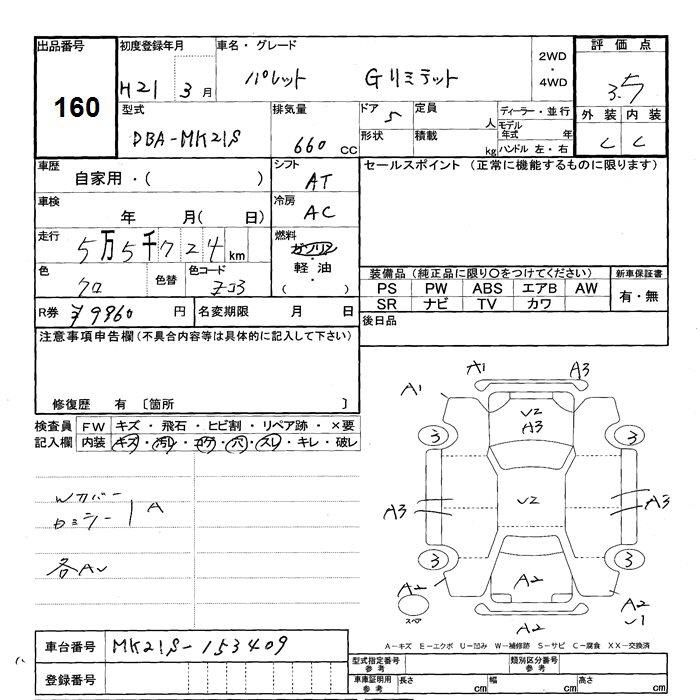 出品番号 初度登録年月 車名・グレード 2WD・4WD 評価点
160 H21 3月 パレット Gリミテッド 3.5
型式 排気量 ドア 5 定員 人 ディーラー・並行 外装 内装
DBA-MK21S 660 CC 形状 積載 kg モデル年式 年 C C
ハンドル 左・右
車歴 シフト セールスポイント (正常に機能するものに限ります)
自家用・( ) AT
車検 冷房
年 月( 日) AC
走行 燃料
5万5千724 km ガソリン・軽油
色 色替 色コード ( )
クロ ZJ3
装備品 (純正品に限り○をつけてください) 新車保証書
PS PW ABS エアB AW 有・無
SR ナビ TV カワ
R券 ¥9860 円 名変期限 月 日 後日品
注意事項申告欄(不具合内容等は具体的に記入して下さい)
修復歴 有 〔箇所 〕
検査員 FW キズ・飛石・ヒビ割・リペア跡・×要
記入欄 内装 キズ・汚レ・コゲ・穴・スレ・キレ・破レ
Wカバー
A
各AU
A1 A1 A3
U2
A3
3 3
A3 U2 A3
3 3
A2 A2
スペア A2 A2
U1
A-キズ E-エクボ U-凹み W-補修跡 S-サビ C-腐食 XX-交換済
車台番号 MK21S-153409
登録番号
型式指定番号 参考 類別区分番号 参考
車庫証明用 参考 長さ cm 幅 cm 高さ cm